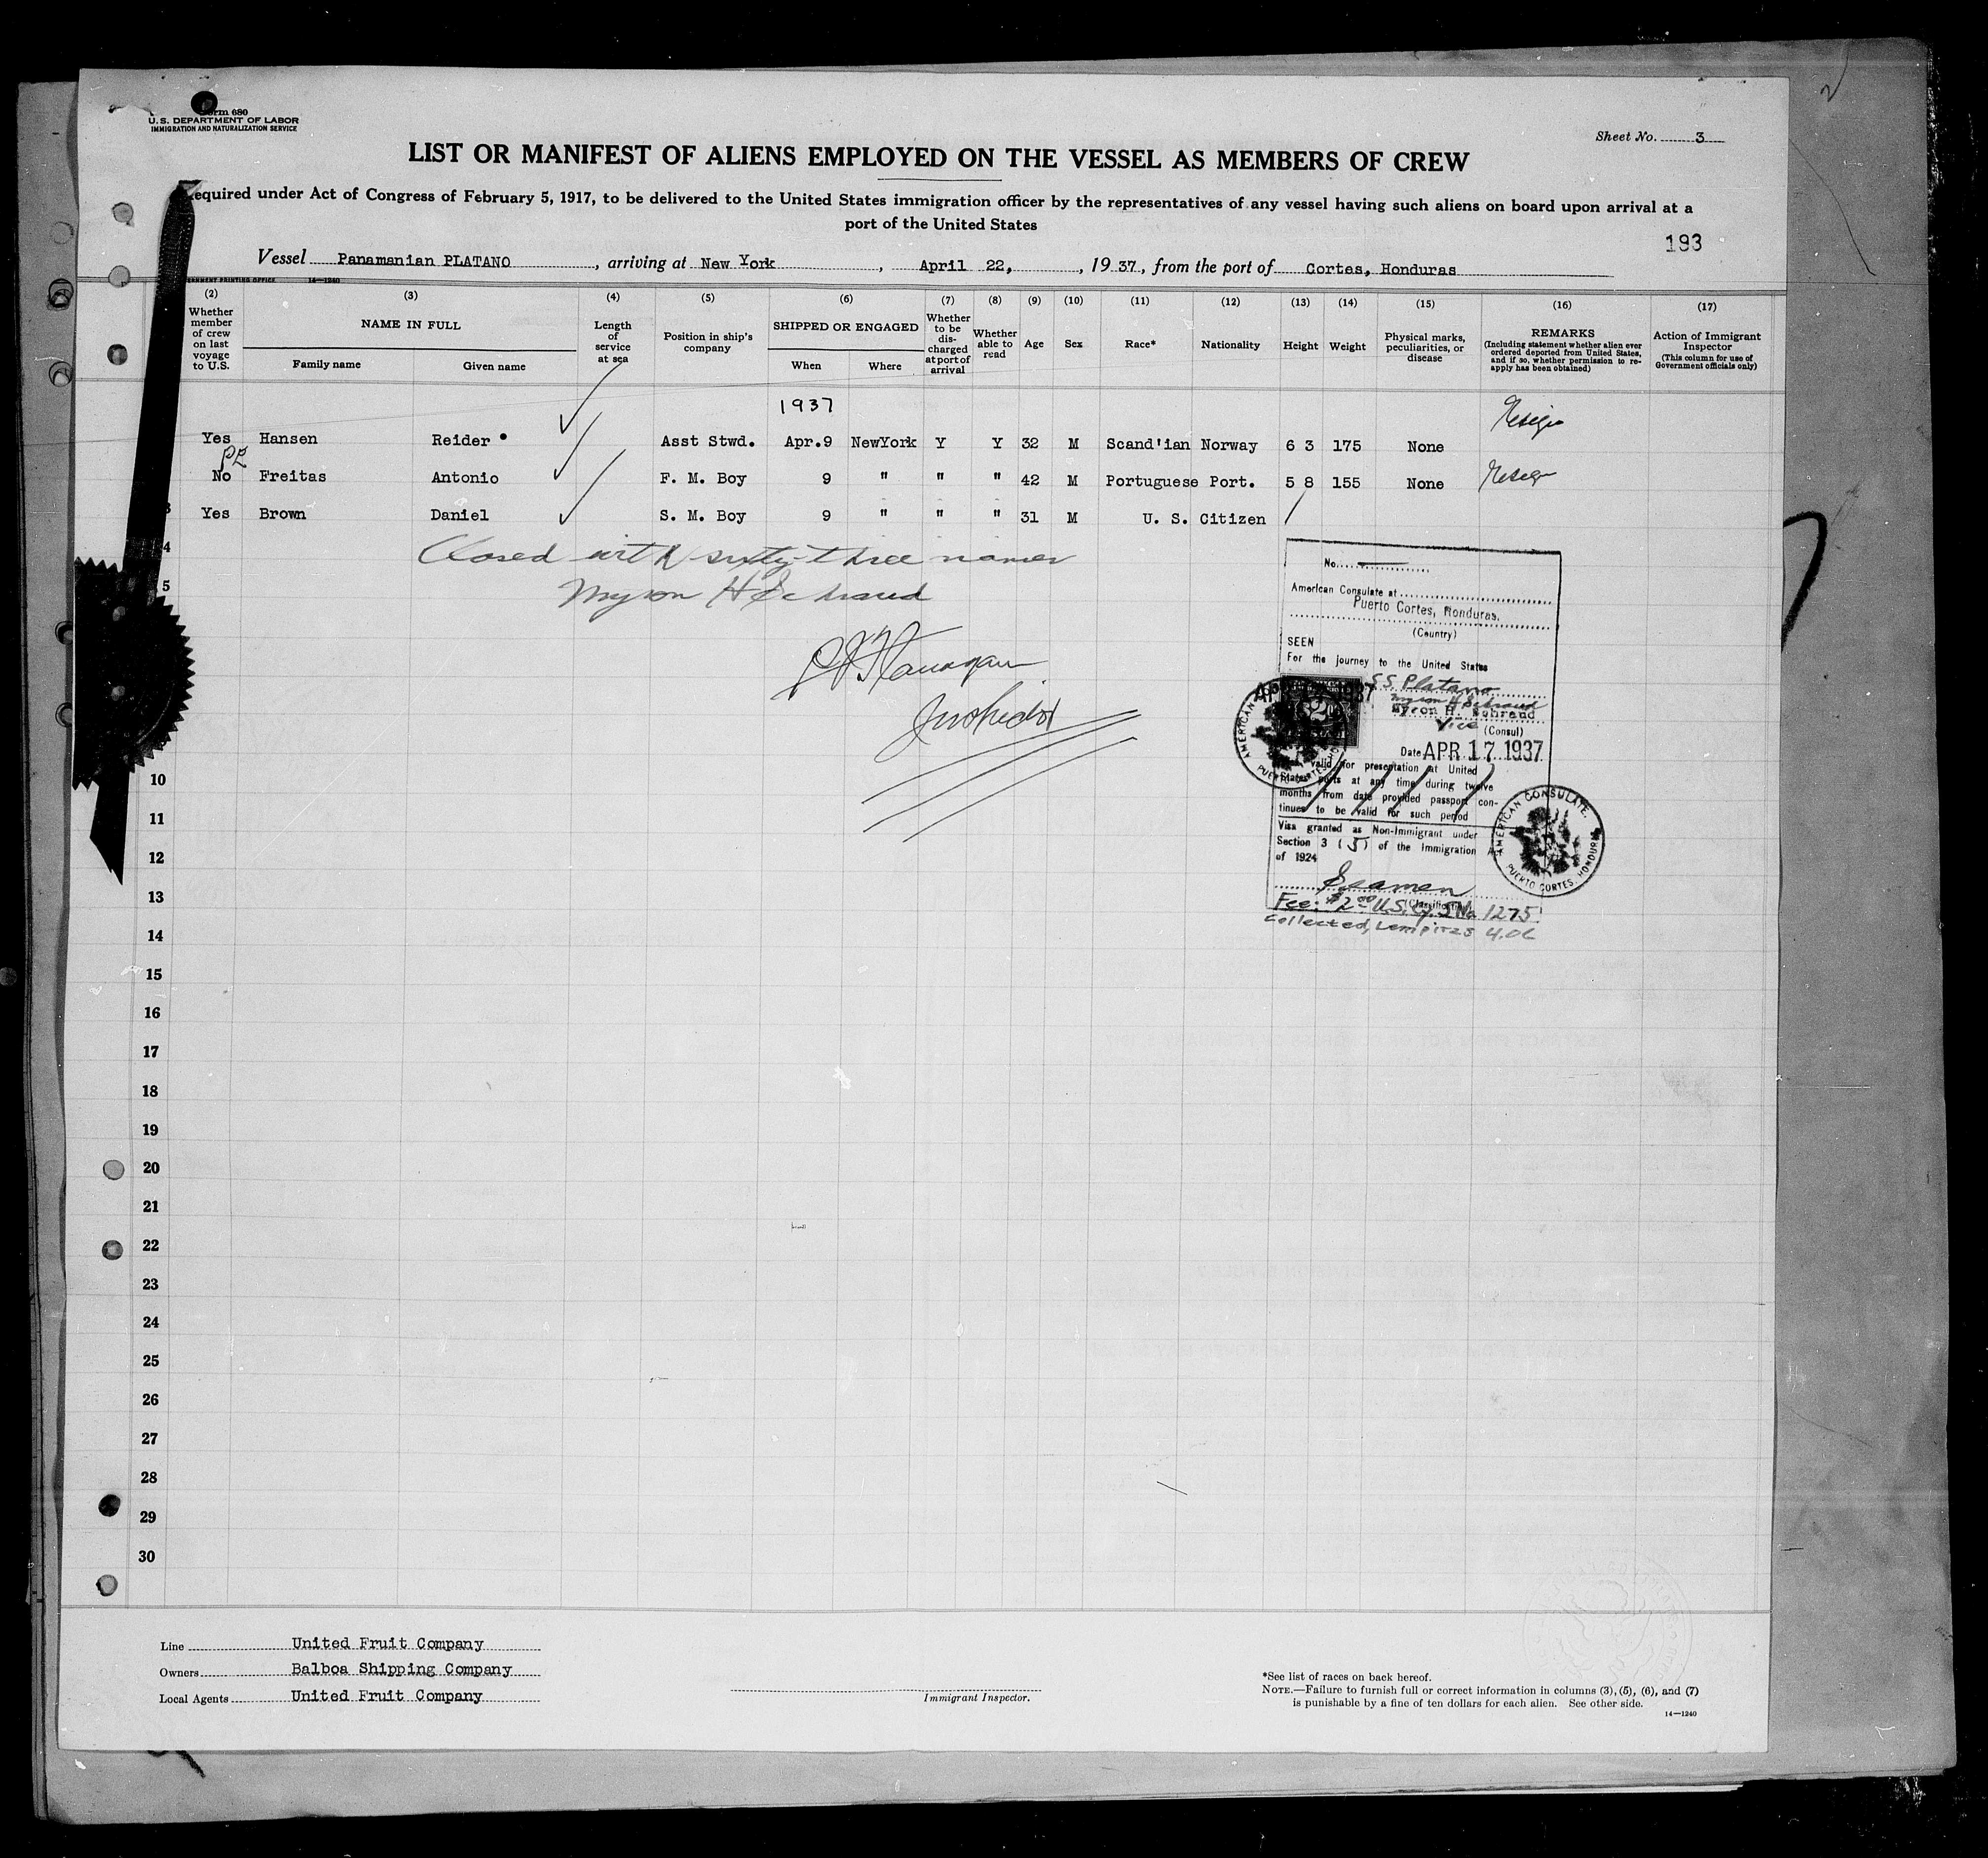 Form 680
U. S. DEPARTMENT OF LABOR
IMMIGRATION AND NATURALIZATION SERVICE
Sheet No. 3
LIST OR MANIFEST OF ALIENS EMPLOYED ON THE VESSEL AS MEMBERS OF CREW
equired under Act of Congress of February 5, 1917, to be delivered to the United States immigration officer by the representatives of any vessel having such aliens on board upon arrival at a
port of the United States
193
Vessel Panamanian PLATANO, arriving at New York, April 22, 1937, from the port of Cortes, Honduras
PRINTING OFFICE 14—1240
(2) (3) (4) (5) (6) (7) (8) (9) (10) (11) (12) (13) (14) (15) (16) (17)
Whether member of crew on last voyage to U.S.
NAME IN FULL
Family name Given name
Length of service at sea
Position in ship's company
SHIPPED OR ENGAGED
When Where
Whether to be discharged at port of arrival
Whether able to read
Age
Sex
Race*
Nationality
Height
Weight
Physical marks, peculiarities, or disease
REMARKS
(Including statement whether alien ever ordered deported from United States, and if so, whether permission to reapply has been obtained)
Action of Immigrant Inspector
(This column for use of Government officials only)
1937
Yes Hansen Reider Asst Stwd. Apr.9 NewYork Y Y 32 M Scand'ian Norway 6 3 175 None
No Freitas Antonio F. M. Boy 9 " " " 42 M Portuguese Port. 5 8 155 None
3 Yes Brown Daniel S. M. Boy 9 " " " 31 M U. S. Citizen
4
Closed with sixty-three names
5
Myron H Schraud
Inspector
No.
American Consulate at
Puerto Cortes, Honduras.
(Country)
SEEN
For the journey to the United States
S.S. Platano
Myron H. Schraud
Vice (Consul)
Date APR 17 1937
valid for presentation at United
States ports at any time during twelve
months from date provided passport con-
tinues to be valid for such period
Visa granted as Non-Immigrant under
Section 3 (5) of the Immigration
of 1924
Seamen
(Classification)
Fee: $2.00 U.S. No. 1275
Collected, Lempiras 4.06
AMERICAN CONSULATE
PUERTO CORTES, HONDURAS
10
11
12
13
14
15
16
17
18
19
20
21
22
23
24
25
26
27
28
29
30
Line United Fruit Company
Owners Balboa Shipping Company
Local Agents United Fruit Company
Immigrant Inspector.
*See list of races on back hereof.
NOTE.—Failure to furnish full or correct information in columns (3), (5), (6), and (7)
is punishable by a fine of ten dollars for each alien. See other side.
14—1240